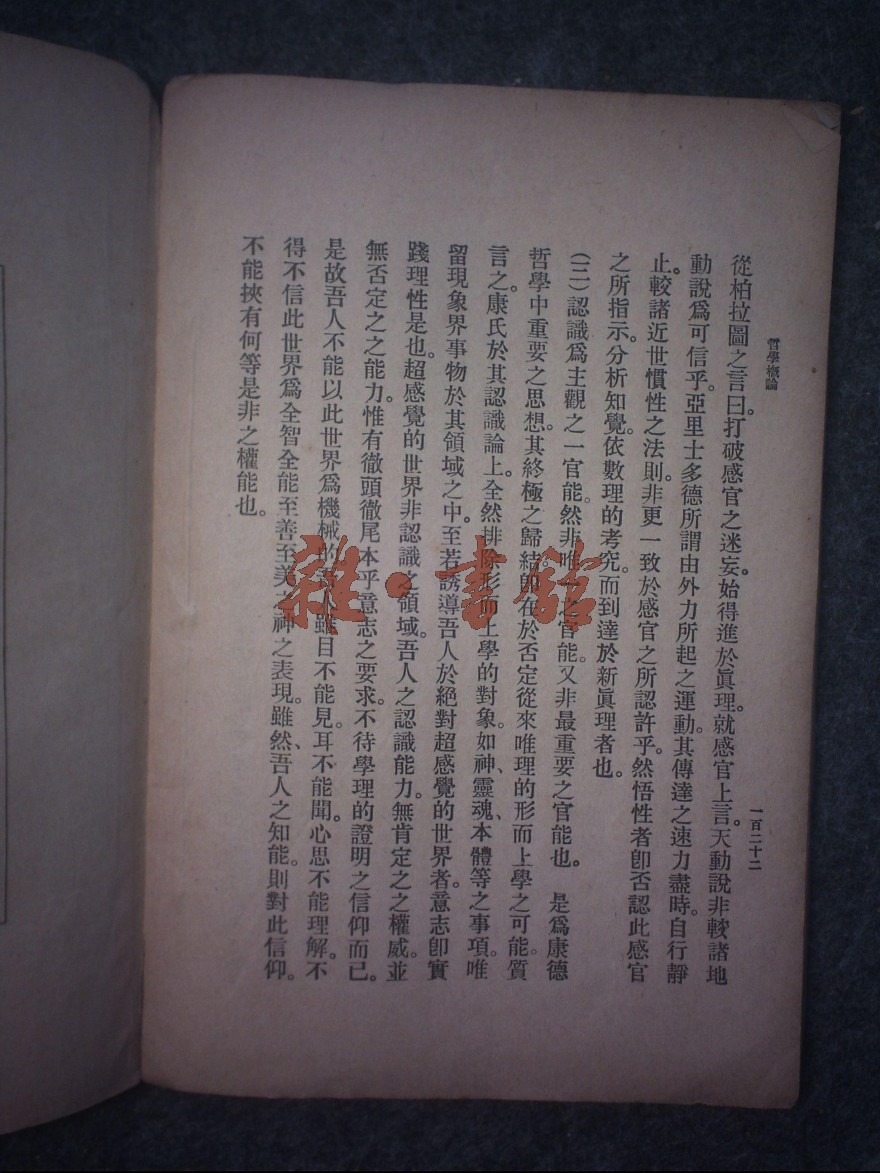 哲學概論
一百二十二
從柏拉圖之言曰。打破感官之迷妄。始得進於眞理。就感官上言。天動說非較諸地
動說爲可信乎。亞里士多德所謂由外力所起之運動。其傳達之速力盡時。自行靜
止。較諸近世慣性之法則。非更一致於感官之所認許乎。然悟性者卽否認此感官
之所指示。分析知覺。依數理的考究。而到達於新眞理者也。
(三)認識爲主觀之一官能。然非唯一之官能。又非最重要之官能也。 是爲康德
哲學中重要之思想。其終極之歸結。卽在於否定從來唯理的形而上學之可能。質
言之。康氏於其認識論上。全然排除形而上學的對象。如神、靈魂、本體等之事項。唯
留現象界事物於其領域之中。至若誘導吾人於絕對超感覺的世界者。意志卽實
踐理性是也。超感覺的世界非認識之領域。吾人之認識能力。無肯定之之權威。並
無否定之之能力。惟有徹頭徹尾本乎意志之要求。不待學理的證明之信仰而已。
是故吾人不能以此世界爲機械的。吾人雖目不能見。耳不能聞。心思不能理解。不
得不信此世界爲全智全能至善至美之神之表現。雖然、吾人之知能。則對此信仰。
不能挾有何等是非之權能也。
雜·書館